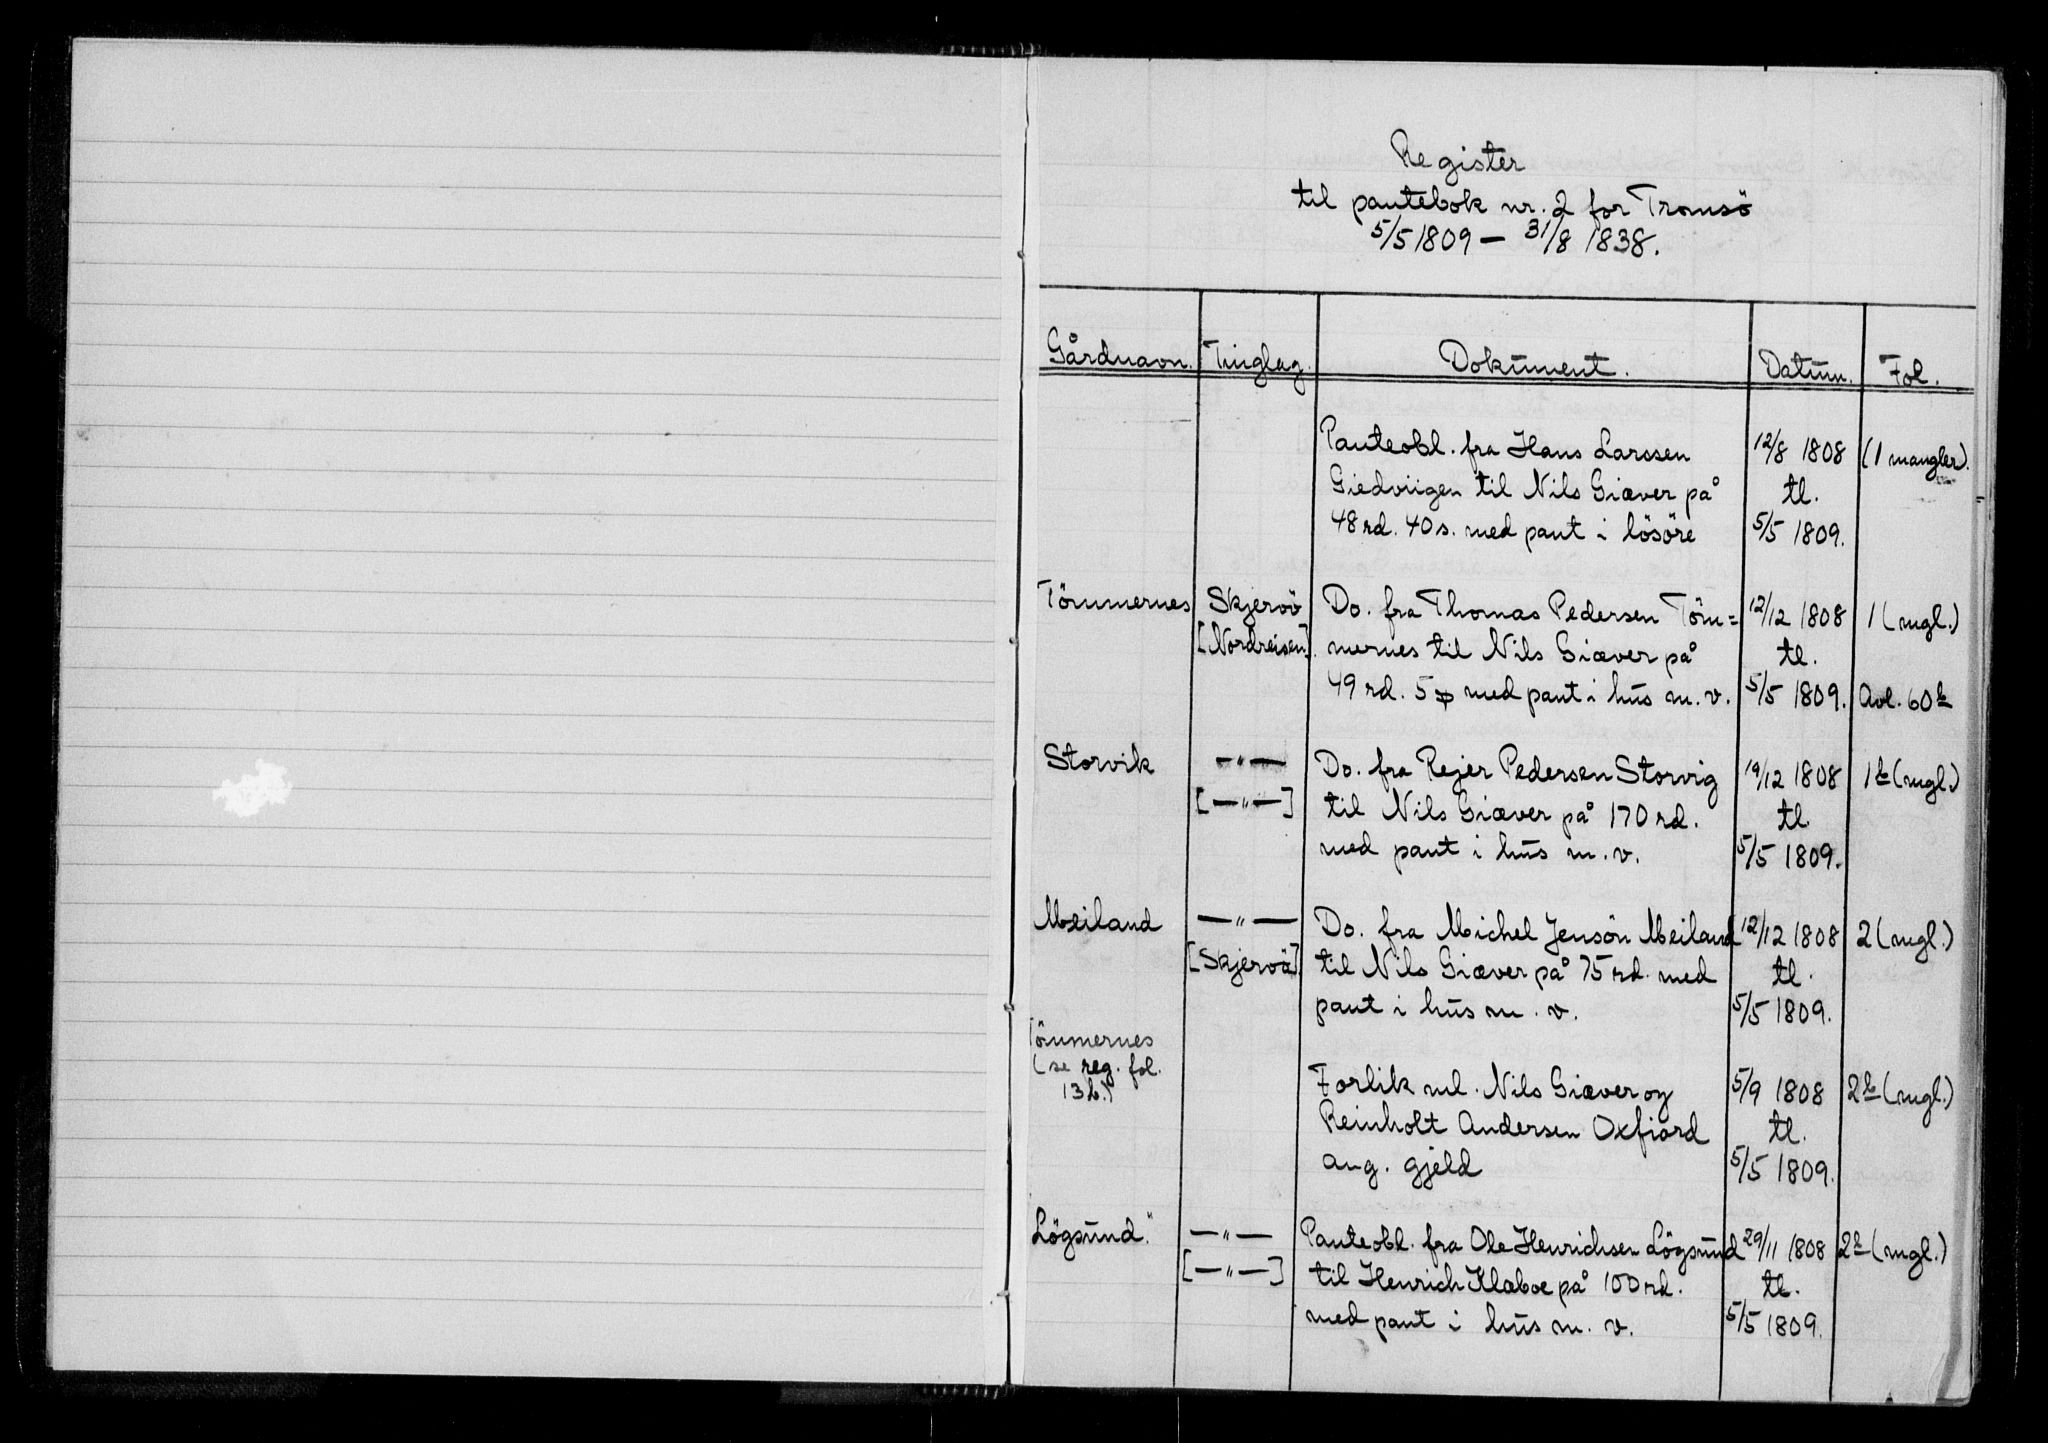 Register
til pantebok nr. 2 for Tromsö
5/5 1809 — 31/8 1838.
Gårdnavn. Tinglag. Dokument. Datum. Fol.
Panteobl. fra Hans Larssen 12/8 1808 (1 mangler).
Giedviigen til Nils Giæver på tl.
48 rd. 40 s. med pant i lösöre 5/5 1809.
Tömmernes Skjervö Do. fra Thomas Pedersen Töm= 12/12 1808 1 (mgl.)
[Nordreisen]. mernes til Nils Giæver på tl.
49 rd. 5 med pant i hus m. v. 5/5 1809. Avl. 60b
Storvik —"— Do. fra Rejer Pedersen Storvig 19/12 1808 1b (mgl.)
[—"—] til Nils Giæver på 170 rd. tl.
med pant i hus m. v. 5/5 1809.
Meiland —"— Do. fra Michel Jensön Meiland 12/12 1808 2 (mgl.)
[Skjervö] til Nils Giæver på 75 rd. med tl.
pant i hus m. v. 5/5 1809.
Tömmernes
(se reg. fol.
13b.)
Forlik ml. Nils Giæver og 5/9 1808 2b (mgl.)
Reinholt Andersen Oxfiord tl.
ang. gjeld 5/5 1809.
Lögsund." —"— Panteobl. fra Ole Henrichsen Lögsund 29/11 1808 2b (mgl.)
[—"—] til Henrich Klæboe på 100 rd. tl.
med pant i hus m. v. 5/5 1809.